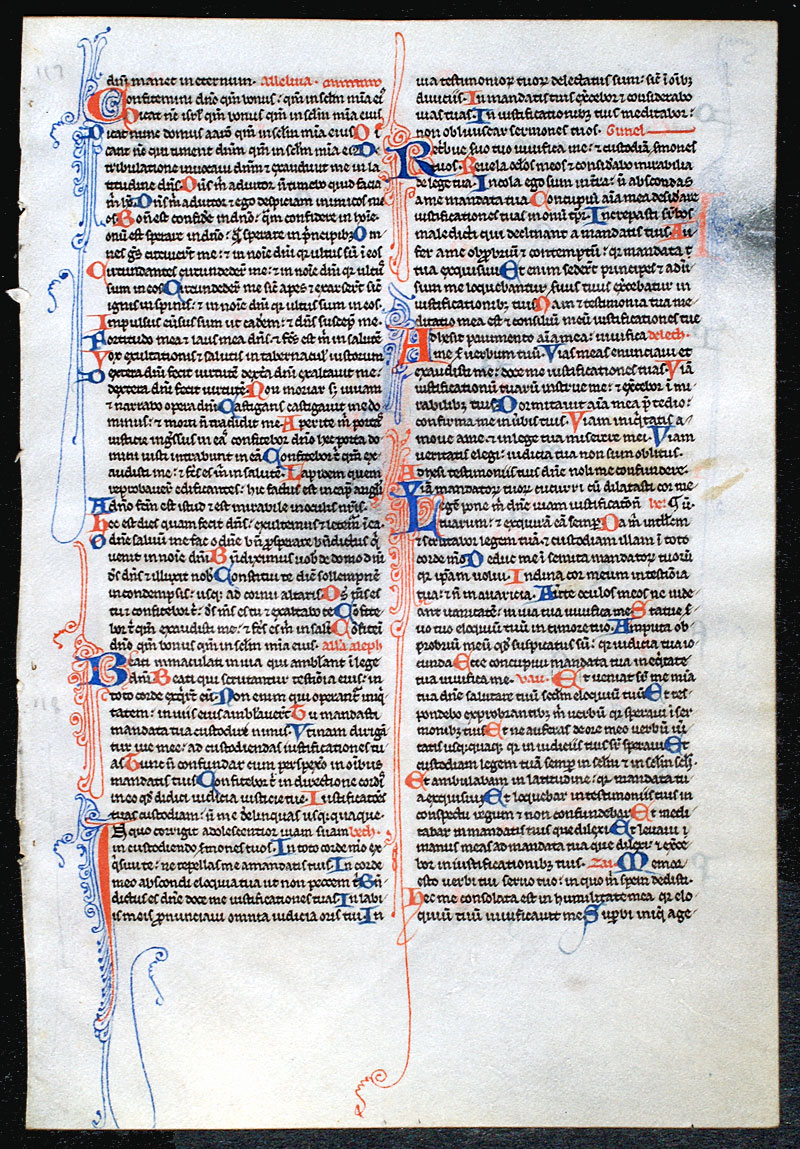 dn̄i manet in eternum. alleluia.
Confitemini dn̄o qm̄ bonus: qm̄ in sclm̄ mīa ei᷒
Dicat nc̄ isrl̄ qm̄ bonus qm̄ in sclm̄ mīa eius
Dicat nunc domus aaron qm̄ in sclm̄ mīa eius Di
cant nc̄ qui timent dn̄m qm̄ in sclm̄ mīa eius De
tribulatione inuocaui dn̄m: et exaudiuit me in la
titudine dn̄s Dn̄s m̄ adiutor nō timebo quid faciat
m̄ hō Dn̄s m̄ adiutor et ego despiciam inimicos me
os Bonū est confidē in dn̄o: qm̄ confidere in hoīe
Bonū est sperare in dn̄o: qm̄ sperare in p̄ncipibꝫ Om
nes gn̄s circuierūt me: et in noīe dn̄i qꝛ ultus sū in eos
Circundantes circundederūt me: et in noīe dn̄i qꝛ ultus
sum in eos Circundederūt me sic̄ apes et exarserūt sic̄
ignis in spinis: et in noīe dn̄i qꝛ ultus sum in eos.
Impulsus euersus sum ut caderem: et dn̄s suscepit me.
Fortitudo mea et laus mea dn̄s: et fc̄s est m̄ in salutē
Vox exultationis et salutis in tabernaculis iustorum
Dextera dn̄i fecit uirtutē dextera dn̄i exaltauit me:
dextera dn̄i fecit uirtutē Non moriar sꝫ uiuam
et narrabo opera dn̄i Castigans castigauit me do
minus: et morti nō tradidit me Aperite m̄ portas
iusticie ingressus in eas confitebor dn̄o hec porta do
mini iusti intrabunt in eā Confitebor t̄ qm̄ ex
audisti me: et fc̄s es m̄ in salutē. Lapidem quem
reprobauerūt edificantes: hic factus est in cap̄ anguli
A dn̄o fc̄m est istud: et est mirabile in oculis nr̄is.
Hec est dies quam fecit dn̄s: exultemus et letemur in ea.
O dn̄e saluū me fac o dn̄e bn̄ prosperare bn̄dictus qui
uenit in noīe dn̄i Bn̄diximus uobis de domo dn̄i
ds̄ dn̄s et illuxit nob̄ Constituite diem sollempnē
in condempsis: usqꝫ ad cornu altaris Ds̄ ms̄ es
tu et confitebor t̄: ds̄ ms̄ es tu et exaltabo te Confite
bor t̄ qm̄ exaudisti me: et fc̄s es m̄ in salutē Confitemini
dn̄o qm̄ bonus qm̄ in sclm̄ mīa eius. all'a aleph
Beati inmaculati in uia qui ambulant in lege
dn̄i Beati qui scrutantur testimonia eius: in
toto corde exquirūt eū. Non enim qui operantur iniqui
tatem: in uiis eius ambulauerūt Tu mandasti
mandata tua custodiri nimis. Vtinam dirigan
tur uie mee: ad custodiendas iustificationes tu
as Tunc nō confundar cum perspexero in oībus
mandatis tuis Confitebor t̄ in directione cordis
in eo qd̄ didici iudicia iusticie tue. Iustificationes
tuas custodiam: nō me delinquas usqꝫ quaque.
In quo corrigit adolescentior uiam suam beth.
in custodiendo sermones tuos. In toto corde mō ex
quisiui te: ne repellas me a mandatis tuis. In corde
meo abscondi eloquia tua ut non peccem t̄ Bn̄
dictus es dn̄e doce me iustificationes tuas In labi
is meis pronunciaui omnia iudicia oris tui In
uia testimonioꝝ tuoꝝ delectatus sum: sic̄ in oībꝫ
diuiciis. In mandatis tuis exercebor et considerabo
uias tuas. In iustificationibꝫ tuis meditabor:
non obliuiscar sermones tuos. Gimel
Retribue suo tuo uiuifica me: et custodiā sermones
tuos. Reuela oclos meos et considerabo mirabilia
de lege tua. Incola ego sum in terra: nō abscondas
a me mandata tua Concupiuit aīa mea desiderare
iustificationes tuas in omi tp̄r. Increpasti supbos
maledicti qui declinant a mandatis tuis Au
fer a me obprobriū et contemptū: qꝛ mandata
tua exquisiui Et enim sederūt principes et adu
sum me loquebantur: suus tuus exercebatur in
iustificationibꝫ tuis Nam et testimonia tua me
ditatio mea est: et consiliū meū iustificationes tue
Adhesit pauimento aīa mea: uiuifica deleth.
me s̄ uerbum tuū. Vias meas enunciaui et
exaudisti me: doce me iustificationes tuas. Viā
iustificationū tuarū instrue me: et exercebor in mi
rabilibꝫ tuis Dormitauit aīa mea p̄ tedio:
confirma me in uerbis tuis. Viam iniqitatis a
moue a me: et in lege tua miserere mei. Viam
ueritatis elegi: iudicia tua non sum oblitus.
Adhesi testimoniis tuis dn̄e noli me confundere.
Viā mandatoꝝ tuoꝝ cucurri cū dilatasti cor me
Legē pone m̄ dn̄e uiam iustificationū he: ū
tuarum: et exquirā eā semper Da m̄ intllm̄
et scrutabor legem tuā et custodiam illam in toto
corde mō Deduc me in semita mandatoꝝ tuoꝝ
qꝛ ipsam uolui. Inclina cor meum in testimonia
tua: et nō in auaricia. Auerte oculos meos ne uide
ant uanitatē: in uia tua uiuifica me Statue ser
uo tuo eloquiū tuū in timore tuo Amputa ob
probriū meū qd̄ suspicatus sū: qꝛ iudicia tua io
cunda Ecce concupiui mandata tua in equitate
tua uiuifica me. vau. Et ueniat s̄ me mīa
tua dn̄e salutare tuū scdm̄ eloquiū tuū Et res
pondebo exprobrantibꝫ m̄ uerbū qꝛ speraui in ser
monibꝫ tuis Et ne auferas de ore meo uerbū ue
ritatis usqꝫquaqꝫ qꝛ in iudiciis tuis supsperaui Et
custodiam legem tuā semper in sclm̄ et in sclm̄ scli.
Et ambulabam in latitudine: qꝛ mandata tu
a exquisiui Et loquebar in testimoniis tuis in
conspectu regum et non confundebar Et medi
tabar in mandatis tuis que dilexi. Et leuaui
manus meas ad mandata tua que dilexi: et exerce
bor in iustificationibꝫ tuis. Zai. Memor
esto uerbi tui seruo tuo: in quo m̄ spem dedisti.
Hec me consolata est in humilitate mea qꝛ elo
quiū tuū uiuificauit me Superbi iniqi age